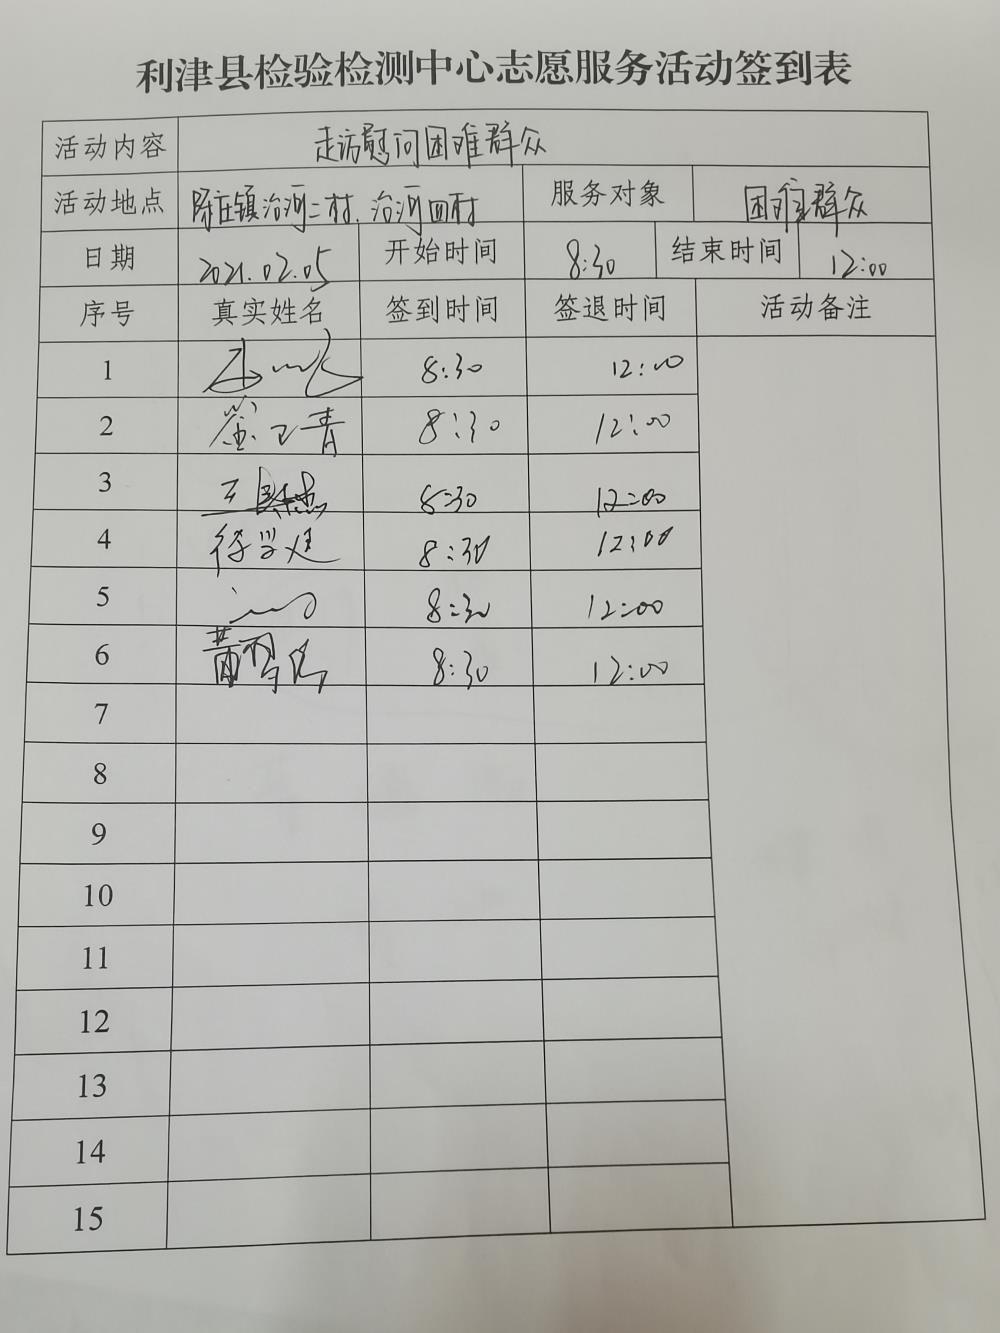 利津县检验检测中心志愿服务活动签到表
活动内容 走访慰问困难群众
活动地点 陈庄镇治河二村、治河四村 服务对象 困难群众
日期 2021.02.05 开始时间 8:30 结束时间 12:00
序号 真实姓名 签到时间 签退时间 活动备注
1 8:30 12:00
2 8:30 12:00
3 8:30 12:00
4 8:30 12:00
5 8:30 12:00
6 8:30 12:00
7
8
9
10
11
12
13
14
15